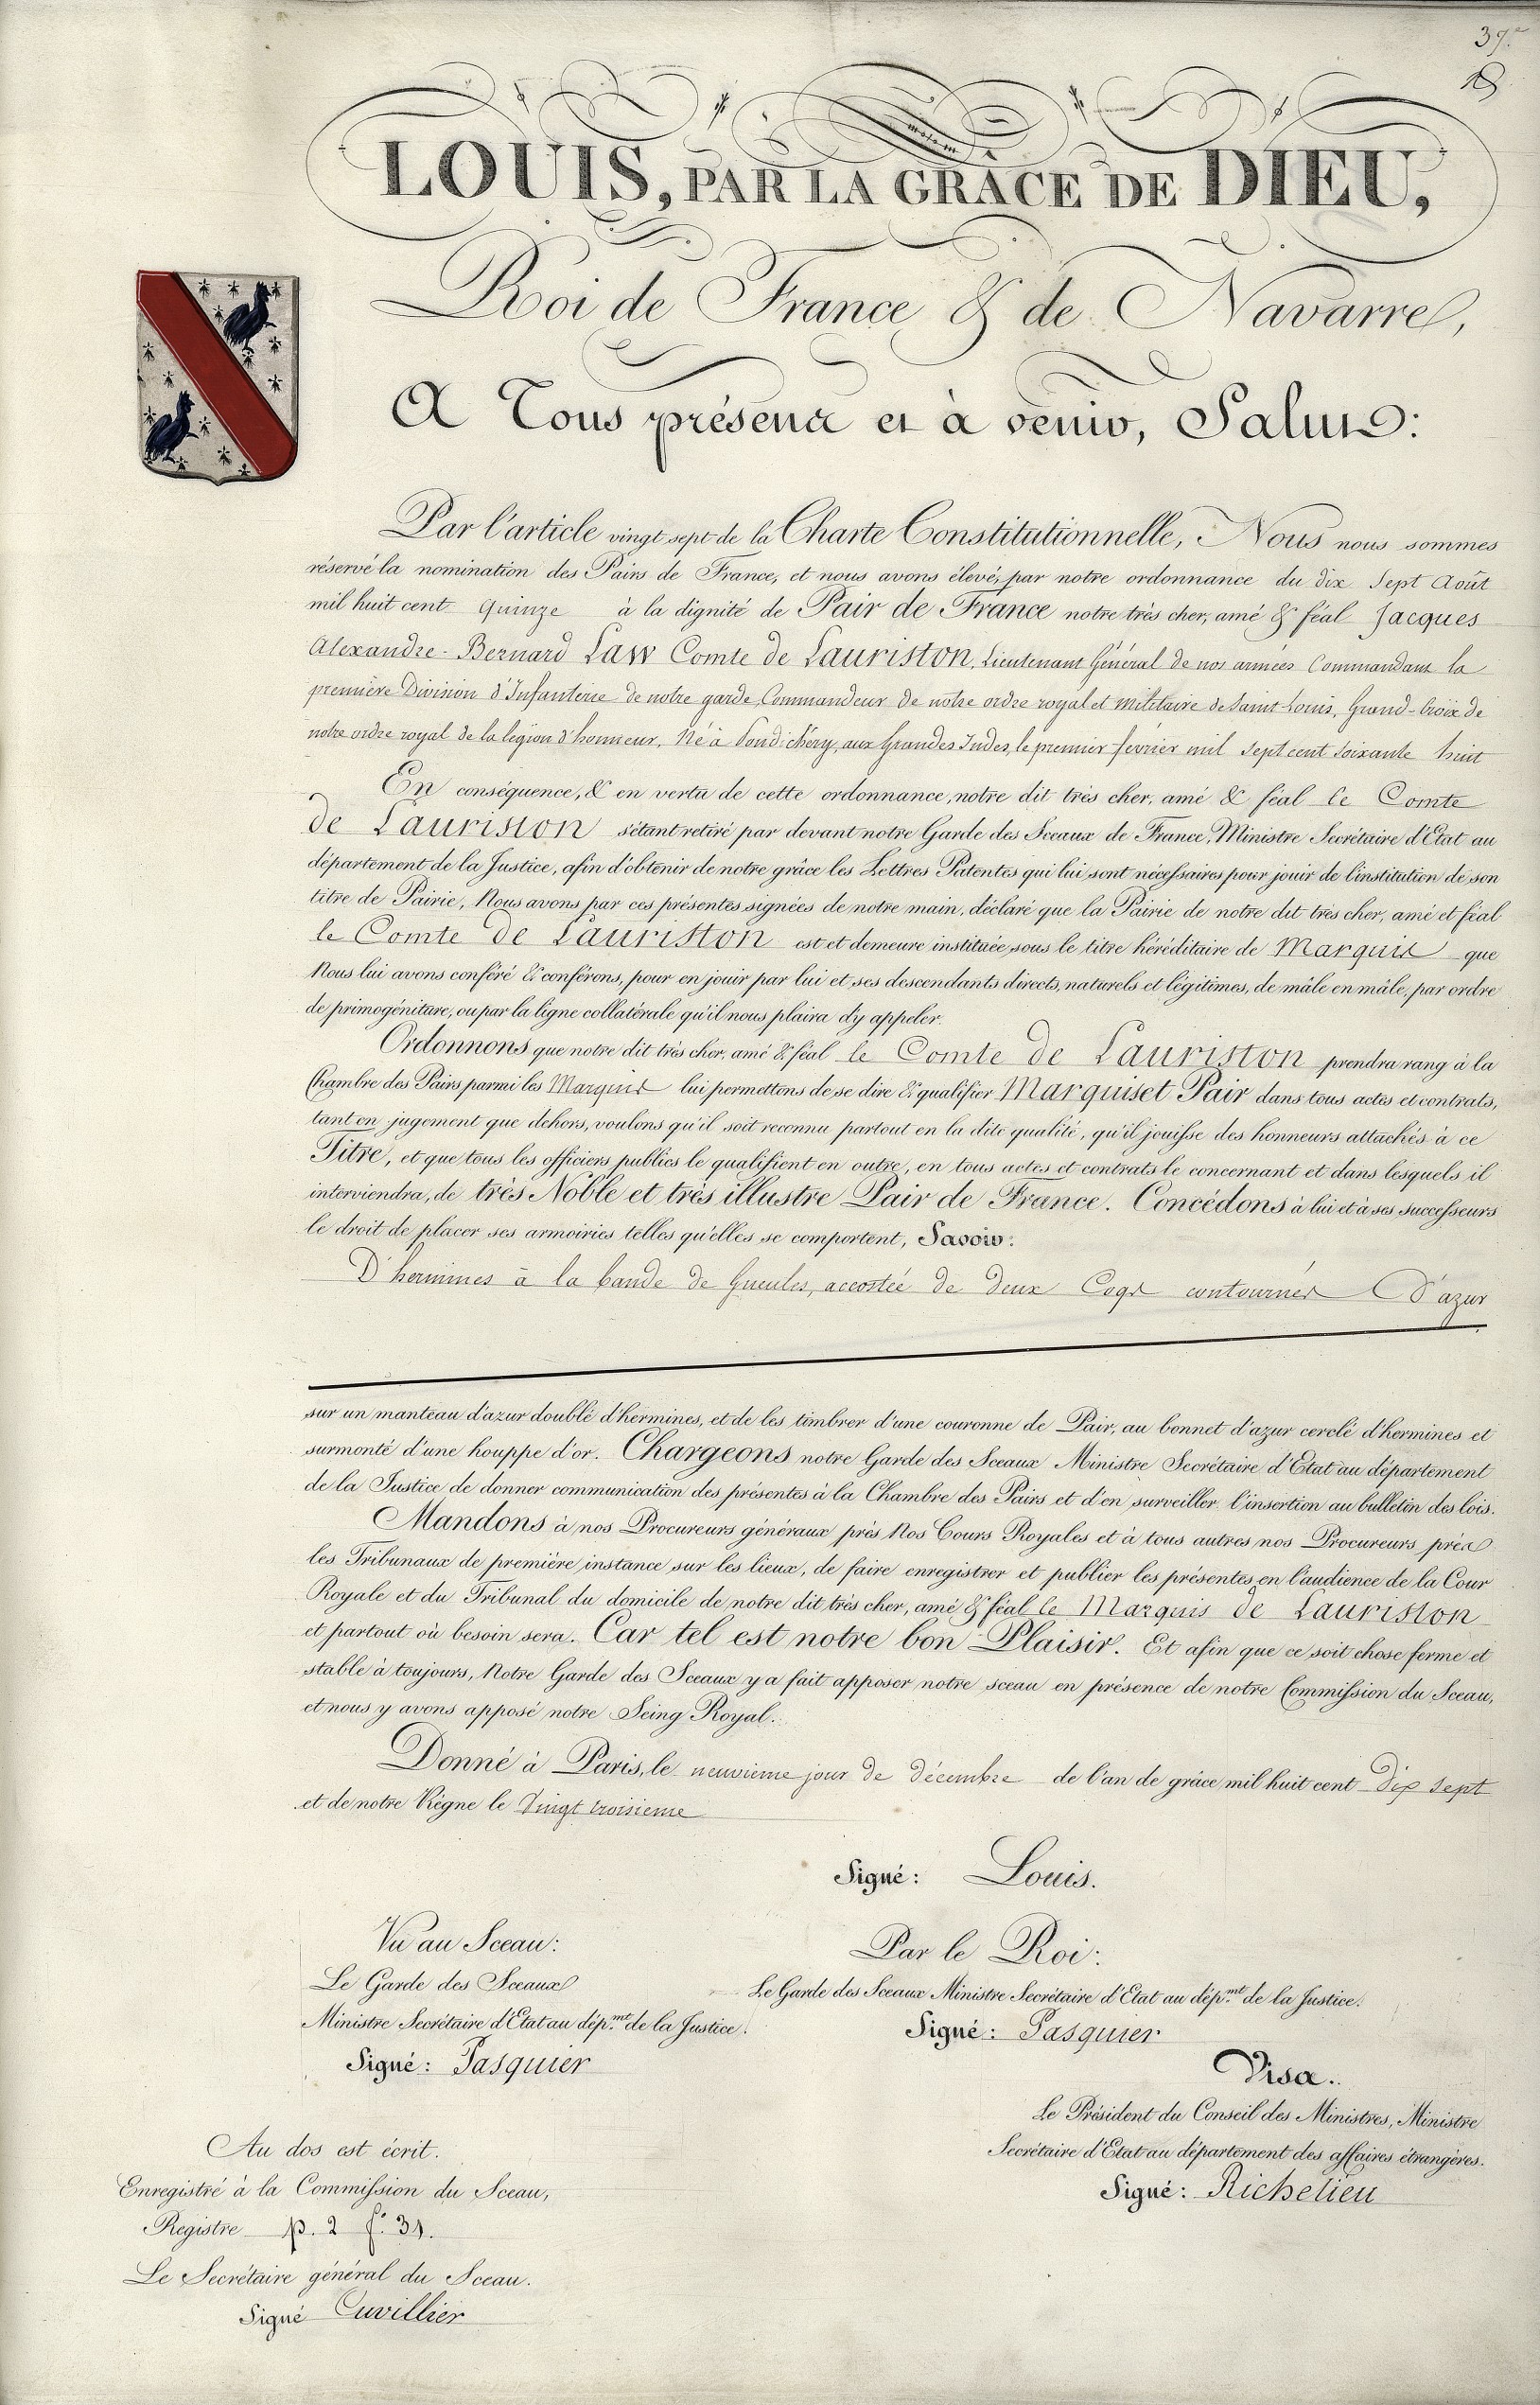 37.e
18
LOUIS, PAR LA GRÂCE DE DIEU,
Roi de France & de Navarre,
A Tous présens et à venir, Salut:
Par l'article vingt sept de la Charte Constitutionnelle, Nous nous sommes
réservé la nomination des Pairs de France, et nous avons élevé, par notre ordonnance du dix Sept Août
mil huit cent quinze à la dignité de Pair de France notre très cher, amé & féal Jacques
Alexandre-Bernard Law Comte de Lauriston, Lieutenant Général de nos armées Commandant la
première Division d'Infanterie de notre garde, Commandeur de notre ordre royal et militaire de Saint Louis, Grand-Croix de
notre ordre royal de la légion d'honneur, Né à Pondichéry, aux Grandes Indes, le premier février mil sept cent soixante huit
En conséquence, & en vertu de cette ordonnance, notre dit très cher, amé & féal le Comte
de Lauriston s'étant retiré par devant notre Garde des Sceaux de France, Ministre Secrétaire d'Etat au
département de la Justice, afin d'obtenir de notre grâce les Lettres Patentes qui lui sont nécessaires pour jouir de l'institution de son
titre de Pairie, Nous avons par ces présentes signées de notre main, déclaré que la Pairie de notre dit très cher, amé et féal
le Comte de Lauriston est et demeure instituée sous le titre héréditaire de Marquis que
Nous lui avons conféré & conférons, pour en jouir par lui et ses descendants directs, naturels et légitimes, de mâle en mâle, par ordre
de primogéniture, ou par la ligne collatérale qu'il nous plaira d'y appeler.
Ordonnons que notre dit très cher, amé & féal le Comte de Lauriston prendra rang à la
Chambre des Pairs parmi les Marquis lui permettons de se dire & qualifier Marquis et Pair dans tous actes et contrats,
tant en jugement que dehors, voulons qu'il soit reconnu partout en la dite qualité, qu'il jouisse des honneurs attachés à ce
Titre, et que tous les officiers publics le qualifient en outre, en tous actes et contrats le concernant et dans lesquels il
interviendra, de très Noble et très illustre Pair de France. Concédons à lui et à ses successeurs
le droit de placer ses armoiries telles qu'elles se comportent, Savoir:
D'hermines à la bande de Gueules, accostée de deux Coqs contournés D'azur
sur un manteau d'azur doublé d'hermines, et de les timbrer d'une couronne de Pair, au bonnet d'azur cerclé d'hermines et
surmonté d'une houppe d'or. Chargeons notre Garde des Sceaux Ministre Secrétaire d'Etat au département
de la Justice de donner communication des présentes à la Chambre des Pairs et d'en surveiller l'insertion au bulletin des lois.
Mandons à nos Procureurs généraux près Nos Cours Royales et à tous autres nos Procureurs près
les Tribunaux de première instance sur les lieux, de faire enregistrer et publier les présentes en l'audience de la Cour
Royale et du Tribunal du domicile de notre dit très cher, amé & féal le Marquis de Lauriston
et partout où besoin sera. Car tel est notre bon Plaisir. Et afin que ce soit chose ferme et
stable à toujours, Notre Garde des Sceaux y a fait apposer notre sceau en présence de notre Commission du Sceau,
et nous y avons apposé notre Seing Royal.
Donné à Paris, le neuvieme jour de décembre de l'an de grâce mil huit cent dix sept
et de notre Règne le Vingt troisieme
Signé: Louis.
Vu au Sceau:
Le Garde des Sceaux
Ministre Secrétaire d'Etat au dép.mt de la Justice.
Signé: Pasquier
Par le Roi:
Le Garde des Sceaux Ministre Secrétaire d'Etat au dép.mt de la Justice.
Signé: Pasquier
Visa.
Le Président du Conseil des Ministres, Ministre
Secrétaire d'Etat au département des affaires étrangères.
Signé: Richelieu
Au dos est écrit.
Enregistré à la Commission du Sceau,
Registre p. 2 f.o 31.
Le Secrétaire général du Sceau.
Signé Cuvillier